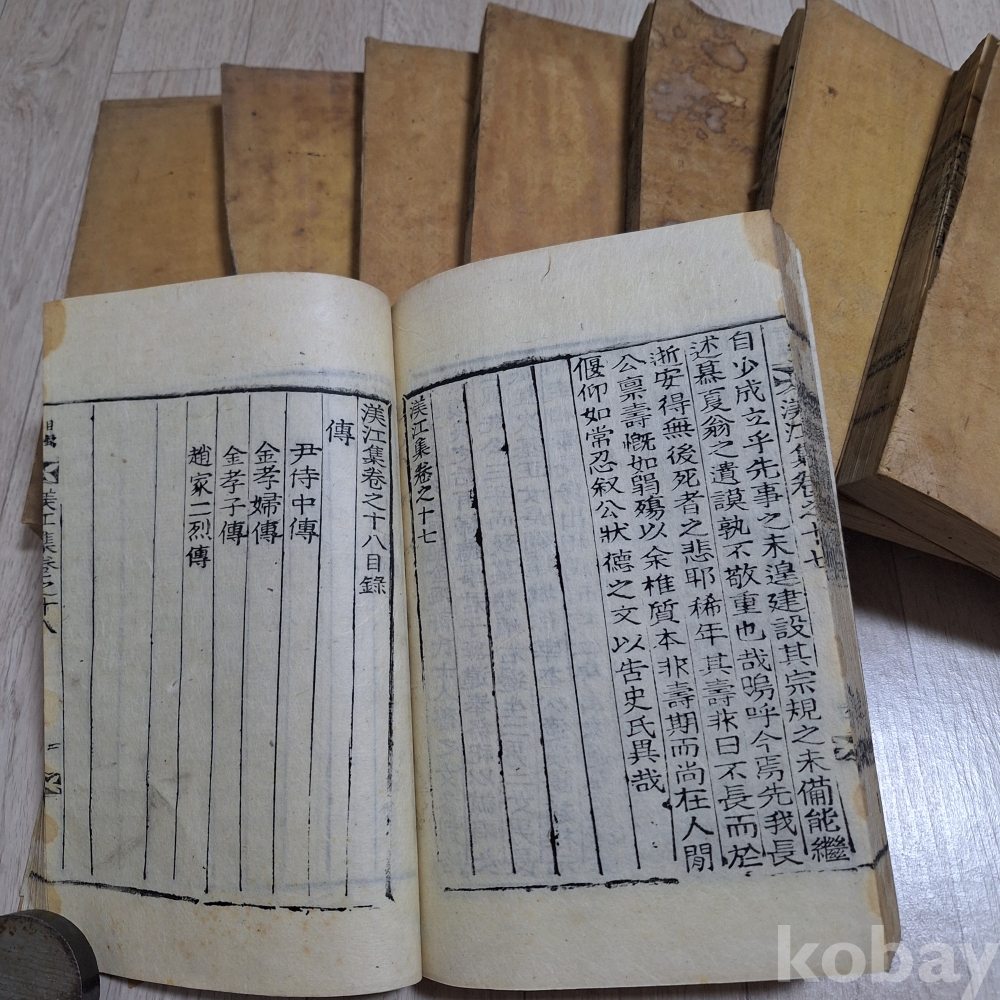 自少成立乎先事之未遑建設其宗規之未備能繼
述慕夏翁之遺謨孰不敬重也哉嗚呼今焉先我長
逝安得無後死者之悲耶稀年其壽非曰不長而於
公稟壽慨如罬殤以余椎質本非壽期而尚在人間
偃仰如常忍叙公狀德之文以告史氏異哉
渼江集卷之十七
渼江集卷之十七
渼江集卷之十八目錄
傳
尹侍中傳
金孝婦傳
金孝子傳
趙家二烈傳
渼江集卷之十八
kobay